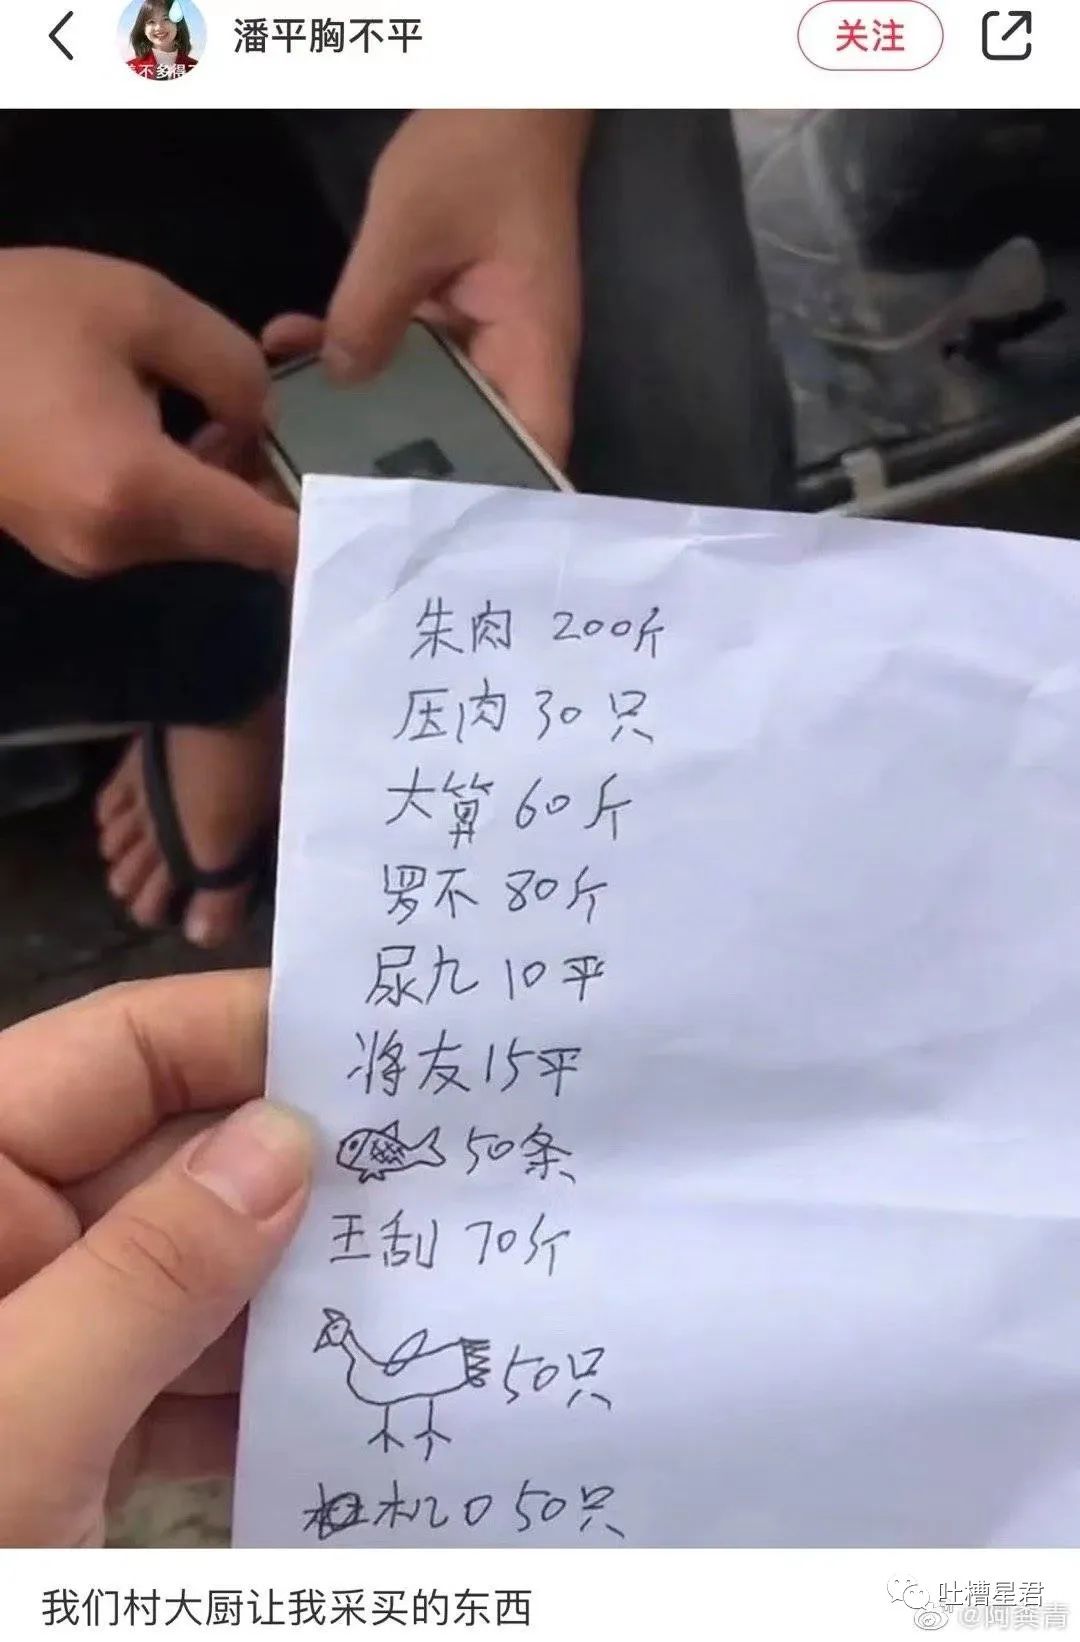 潘平胸不平
关注
差不多得了
朱肉 200斤
压肉 30只
大算 60斤
罗不 80斤
尿九 10平
将友 15平
50条
王刮 70斤
50只
机口 50只
我们村大厨让我采买的东西
吐槽星君
@阿粪青